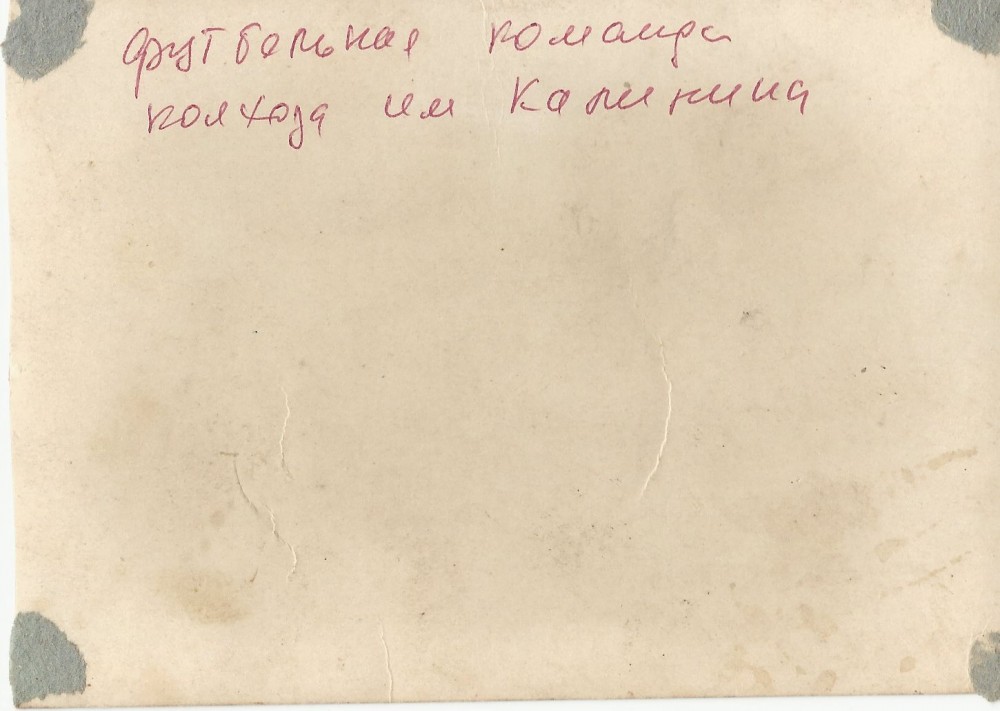 футбольная команда
колхоза им Калинина